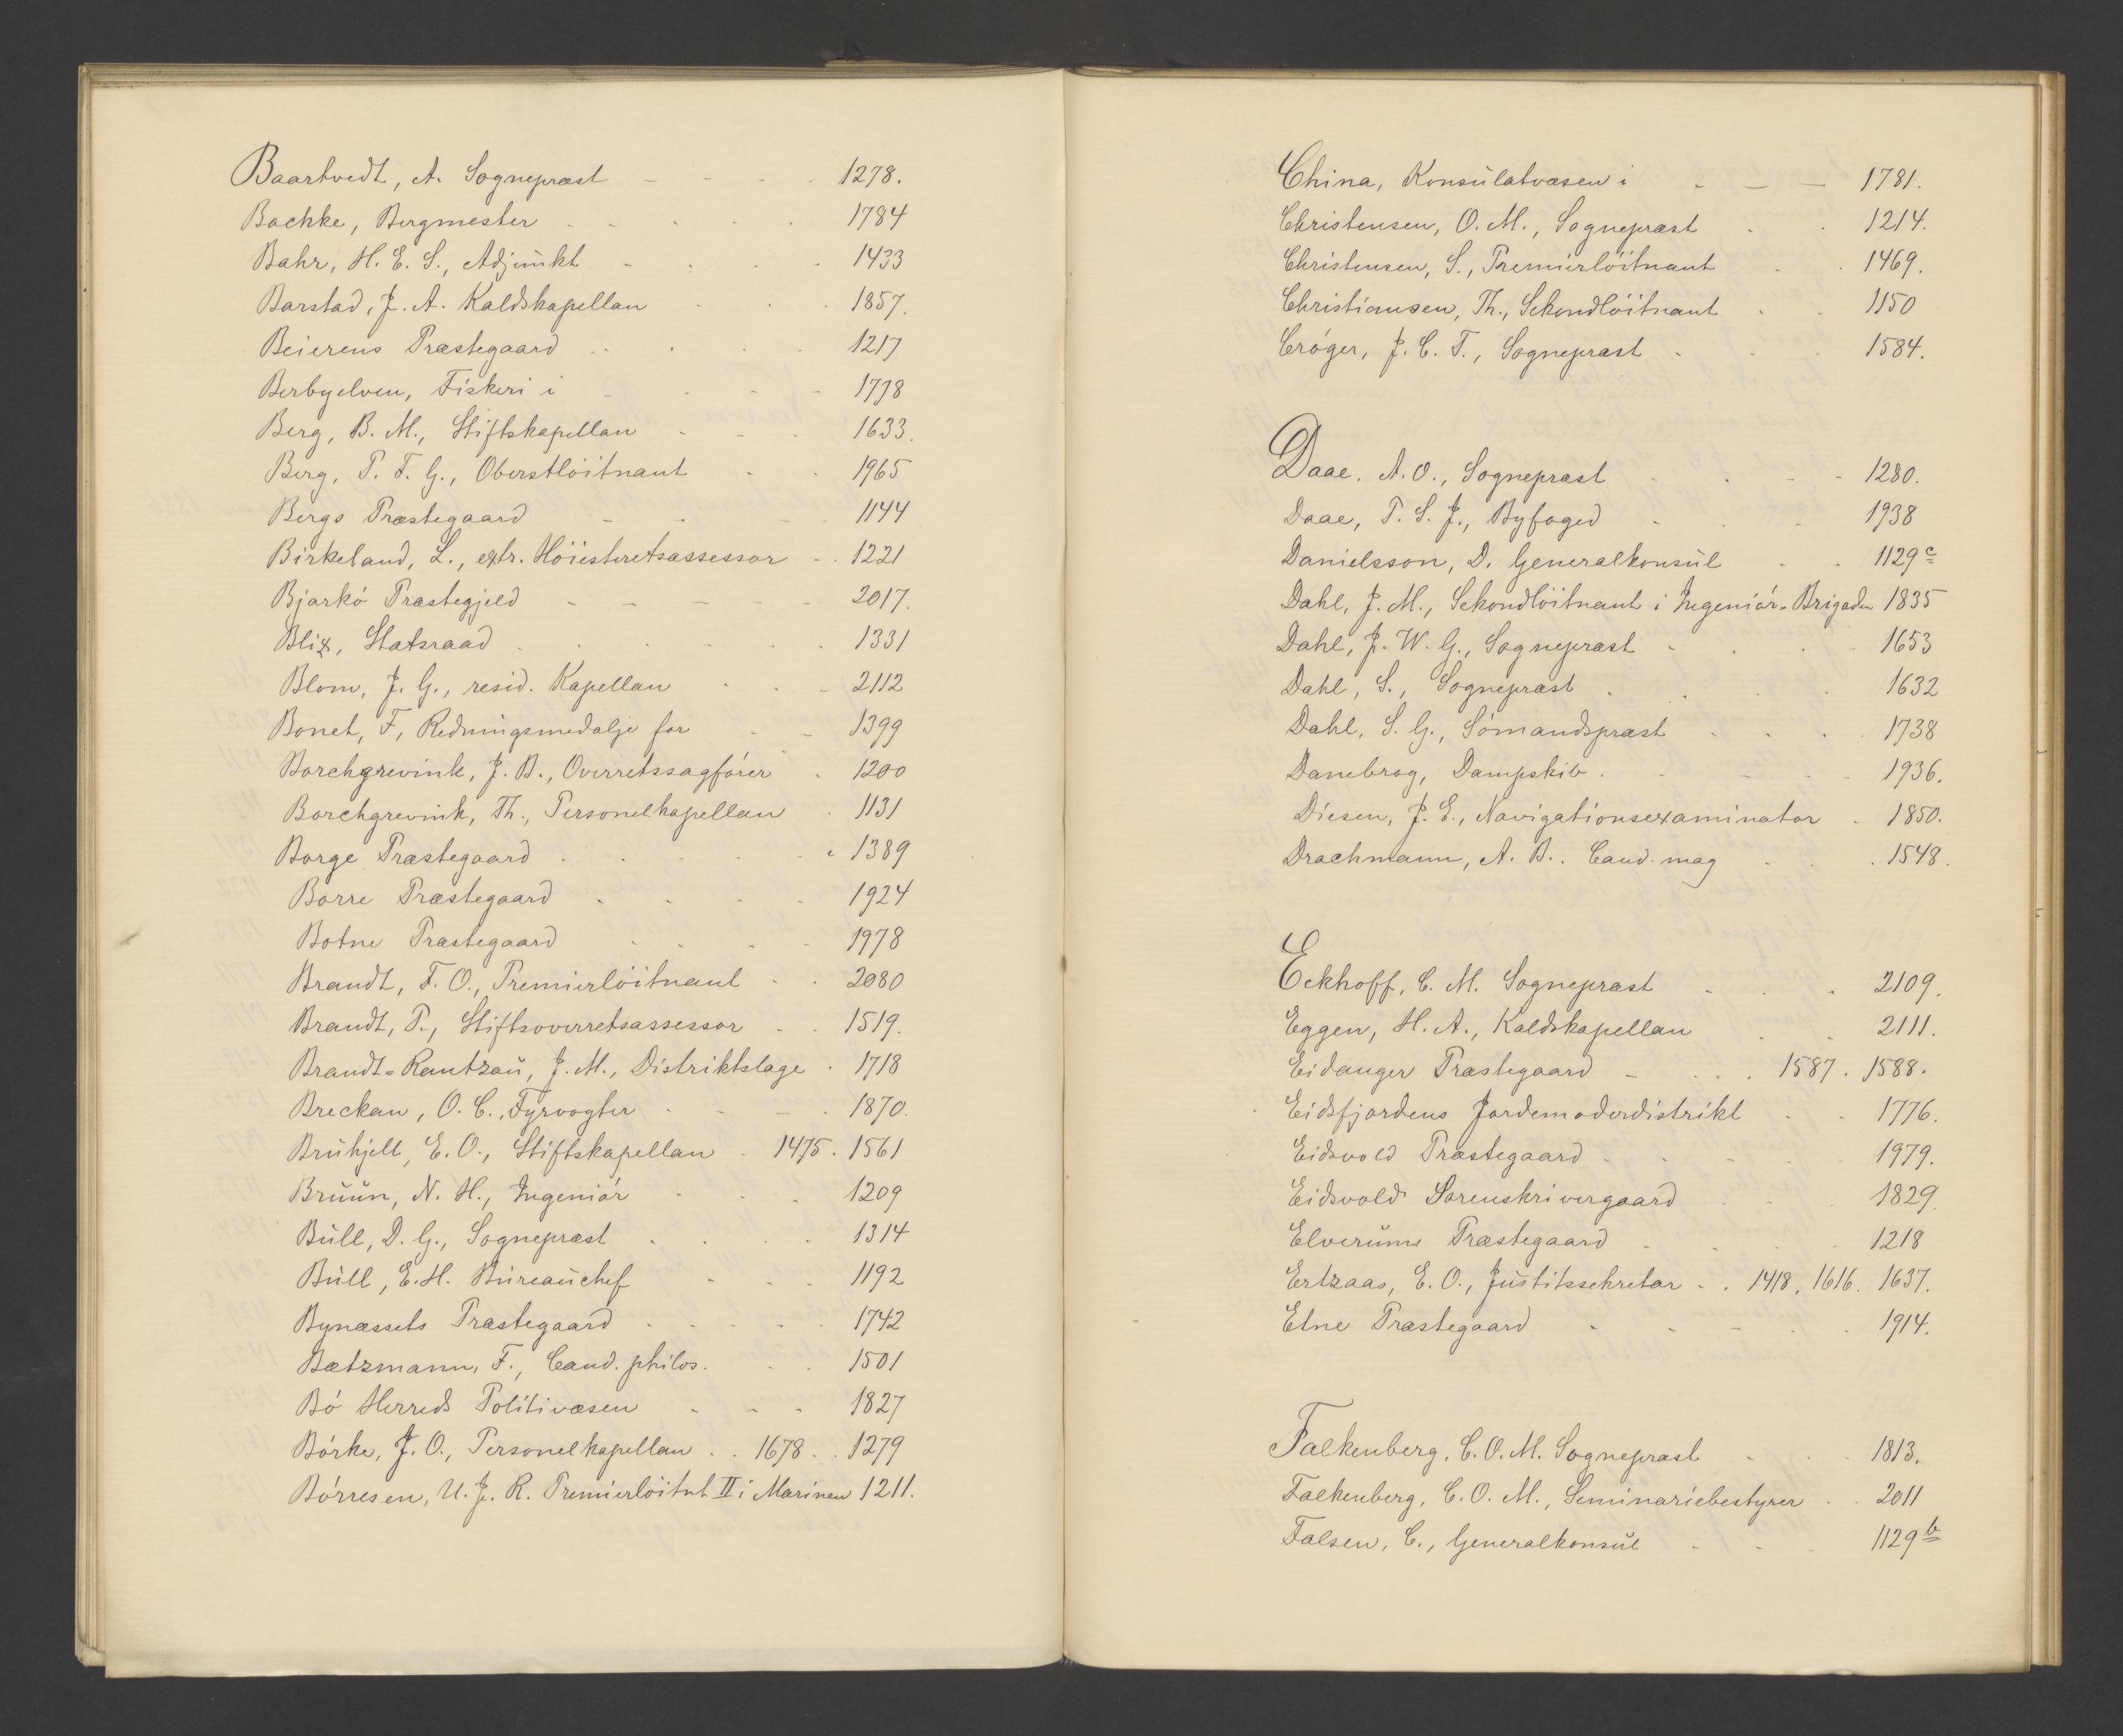 Baartvedt, A. Sognepræst - - - - 1278.
Bachke, Bergmester - - - - 1784
Bahr, H. E. S., Adjunkt - - - - 1433
Barstad, J. A. Kaldskapellan - - - 1857.
Beierens Præstegaard - - - - 1217
Berbyelven, Fiskeri i - - - - 1778
Berg, B. M., Stiftskapellan - - - 1633.
Berg, P. F. G., Oberstlöitnant - - 1965
Bergs Præstegaard - - - 1144
Birkeland, L., extr. Höiesteretsassessor - - 1221
Bjarkö Præstegjeld - - - - - 2017.
Blix, Statsraad - - - - - 1331
Blom, J. G., resid. Kapellan - - - 2112
Bonet, F, Redningsmedalje for - - 1399
Borchgrevink, J. B., Overretssagförer - 1200
Borchgrevink, Th., Personelkapellan - 1131
Borge Præstegaard - - - - - 1389
Borre Præstegaard - - - - 1924
Botne Præstegaard - - - - 1978
Brandt, F. O., Premierlöitnant - - 2080
Brandt, P., Stiftsoverretsassessor - - 1519.
Brandt-Rantzau, J. M., Distriktslæge - 1718
Breckan, O. C., Fyrvogter - - - - 1870.
Bruhjell, E. O., Stiftskapellan - 1475. 1561
Bruun, N. H., Ingeniör - - - 1209
Bull, D. G., Sognepræst - - - - 1314
Bull, E. H. Bureauchef - - - 1192
Bynæssets Præstegaard - - - - - 1742
Bætzmann, F., Cand. philos. - - 1501
Bö Herreds Politivæsen - - - 1827
Börke, J. O., Personelkapellan . . 1678 . . 1279
Börresen, U. J. R. Premierlöitnt II i Marinen 1211.
China, Konsulatvæsen i - - - 1781.
Christensen, O. M., Sognepræst - - 1214.
Christensen, S., Premierlöitnant - - 1469.
Christiansen, Th., Sekondlöitnant - - 1150
Cröger, J. C. T., Sognepræst - - - 1584.
Daae, A. O., Sognepræst - - - - 1280.
Daae, T. S. J., Byfoged - - - 1938
Danielsson, D. Generalkonsul - - 1129 c
Dahl, J. M., Sekondlöitnant i Ingeniör-Brigaden 1835
Dahl, J. W. G., Sognepræst - - - - 1653
Dahl, S., Sognepræst - - - 1632
Dahl, S. G., Sömandspræst - - - - 1738
Danebrog, Dampskib - - - - 1936.
Diesen, J. E., Navigationsexaminator - 1850.
Drachmann, A. B.. Cand. mag - - - 1548.
Eckhoff, C. M. Sognepræst - - - 2109.
Eggen, H. A., Kaldskapellan - - 2111.
Eidanger Præstegaard - - - - 1587. 1588.
Eidsfjordens Jordemoderdistrikt - - 1776.
Eidsvold Præstegaard - - - - - 1979.
Eidsvolds Sorenskrivergaard - - - 1829.
Elverums Præstegaard - - - - 1218
Ertzaas, E. O., Justitssekretær - . 1418. 1616. 1637.
Etne Præstegaard - - - - - 1914.
Falkenberg, C. O. M. Sognepræst - - - 1813.
Falkenberg, C. O. M., Seminariebestyrer - . 2011
Falsen, C., Generalkonsul - - - 1129 b